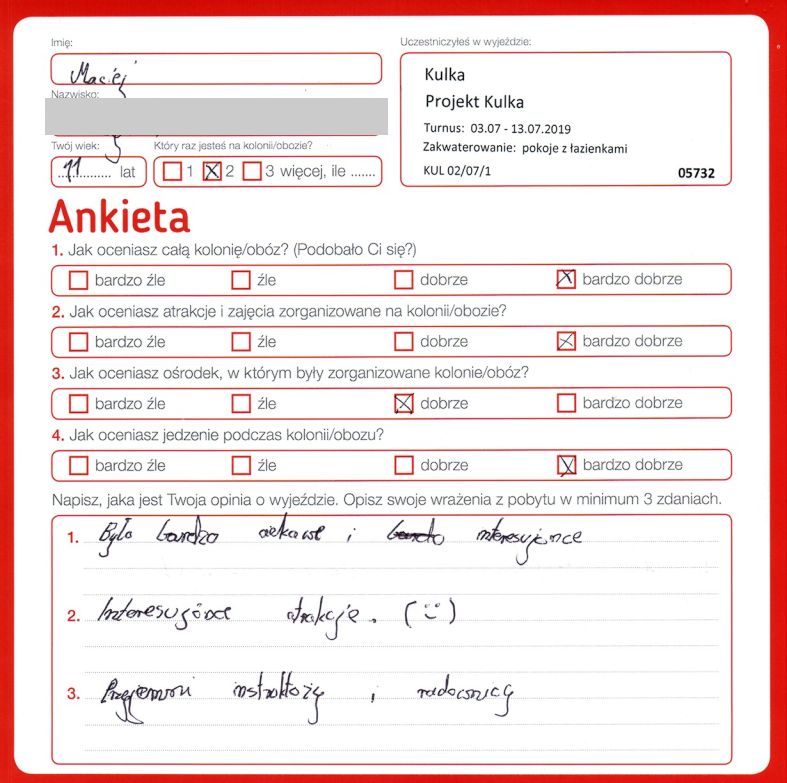 Imię:
Maciej
Nazwisko:
Twój wiek:
11 lat
Który raz jesteś na kolonii/obozie?
1 2 3 więcej, ile .......
Uczestniczyłeś w wyjeździe:
Kulka
Projekt Kulka
Turnus: 03.07 - 13.07.2019
Zakwaterowanie: pokoje z łazienkami
KUL 02/07/1 05732
Ankieta
1. Jak oceniasz całą kolonię/obóz? (Podobało Ci się?)
bardzo źle źle dobrze bardzo dobrze
2. Jak oceniasz atrakcje i zajęcia zorganizowane na kolonii/obozie?
bardzo źle źle dobrze bardzo dobrze
3. Jak oceniasz ośrodek, w którym były zorganizowane kolonie/obóz?
bardzo źle źle dobrze bardzo dobrze
4. Jak oceniasz jedzenie podczas kolonii/obozu?
bardzo źle źle dobrze bardzo dobrze
Napisz, jaka jest Twoja opinia o wyjeździe. Opisz swoje wrażenia z pobytu w minimum 3 zdaniach.
1. Było bardzo ciekawe i interesujonce
2. Interesujönce atrakcje. (:-)
3. Przyjemni instruktoży i